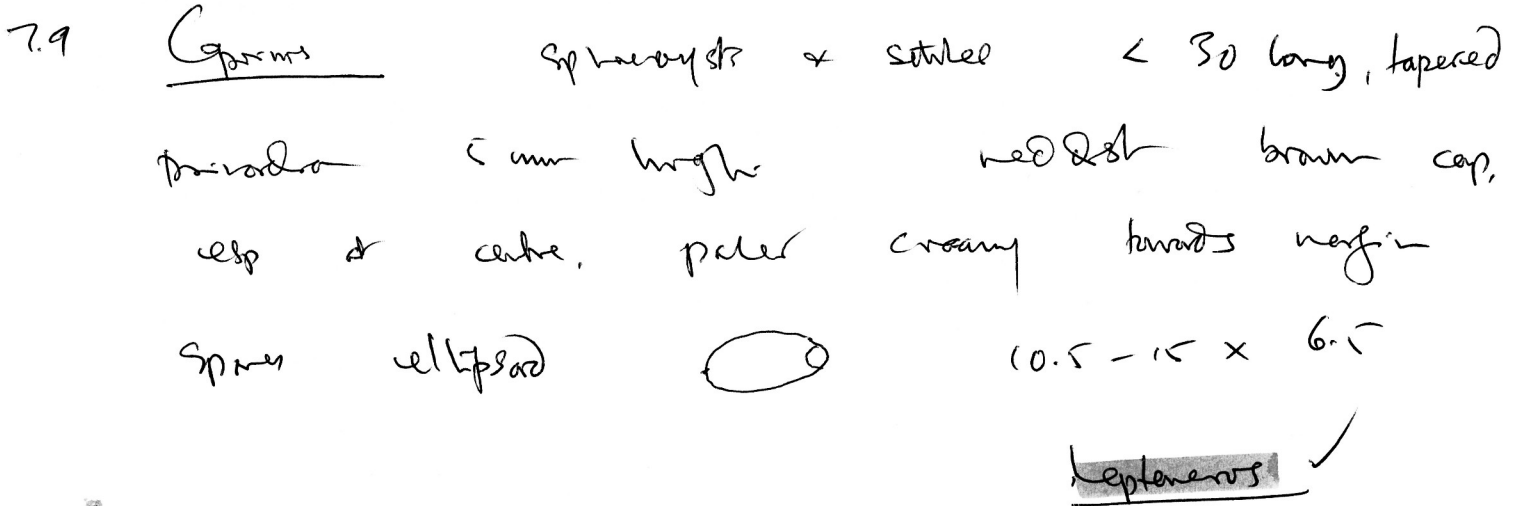 7.9 Coprinus sphaerocysts & setulae < 30 long, tapered
primordia 5 mm high. reddish brown cap,
esp at centre, paler creamy towards margin
Spores ellipsoid 10.5 - 15 x 6.5